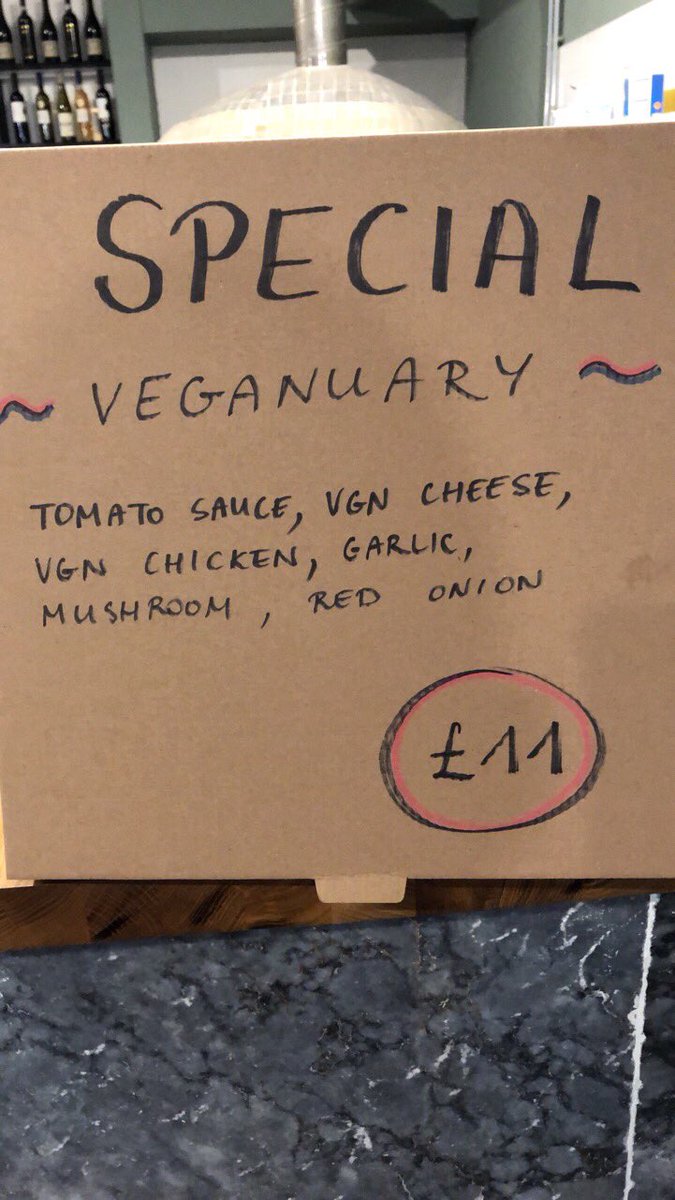 SPECIAL
~ VEGANUARY ~
TOMATO SAUCE, VGN CHEESE,
VGN CHICKEN, GARLIC,
MUSHROOM, RED ONION
£11